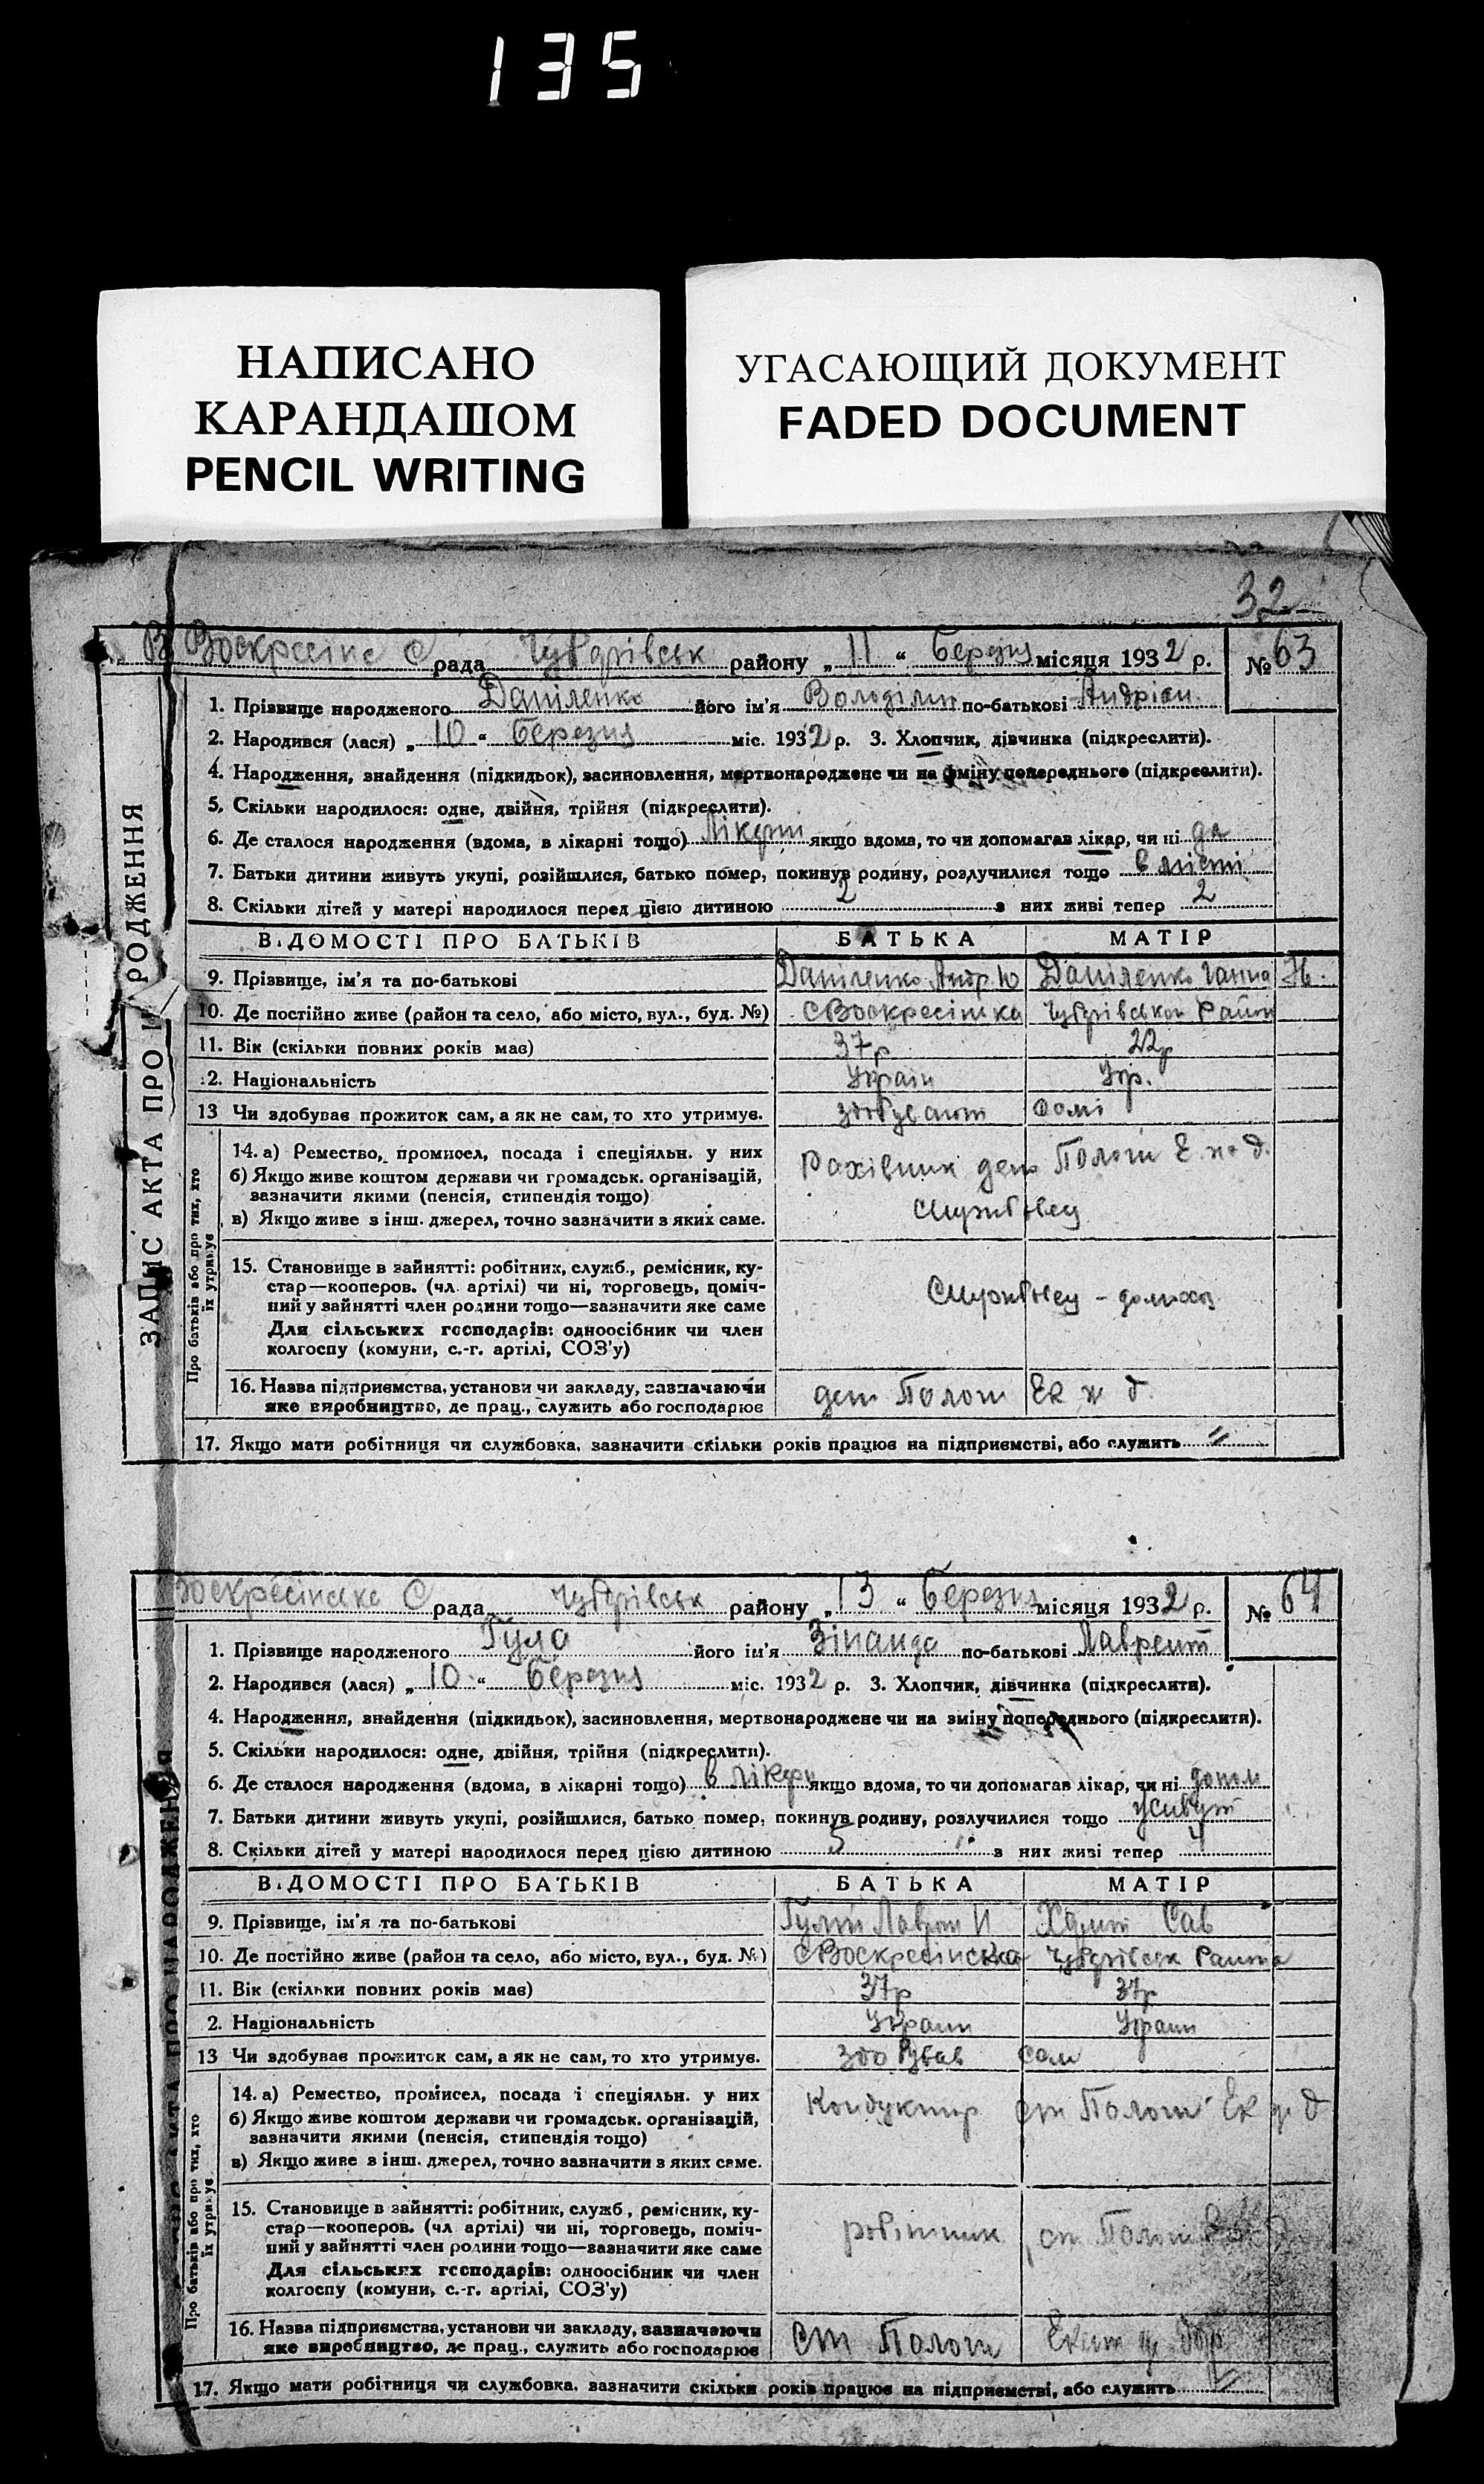 135
НАПИСАНО
КАРАНДАШОМ
PENCIL WRITING
УГАСАЮЩИЙ ДОКУМЕНТ
FADED DOCUMENT
32
ЗАПИС АКТА ПРО НАРОДЖЕННЯ
рада Чубарівськ району „11“ березня місяця 1932 р. № 63
1. Прізвище народженого Даніленко його ім'я по-батькові Андріян
2. Народився (лася) „10“ березня міс. 1932 р. 3. Хлопчик, дівчинка (підкреслити).
4. Народження, знайдення (підкидьок), засиновлення, мертвонароджене чи на зміну попереднього (підкреслити).
5. Скільки народилося: одне, двійня, трійня (підкреслити).
6. Де сталося народження (вдома, в лікарні тощо) якщо вдома, то чи допомагав лікар, чи ні да
7. Батьки дитини живуть укупі, розійшлися, батько помер, покинув родину, розлучилися тощо
8. Скільки дітей у матері народилося перед цією дитиною 2 з них живі тепер 2
ВІДОМОСТІ ПРО БАТЬКІВ БАТЬКА МАТІР
9. Прізвище, ім'я та по-батькові Даніленко Андр Ю Даніленко Ганна
10. Де постійно живе (район та село, або місто, вул., буд. №) с Воскресінка Чубарівськ Район
11. Вік (скільки повних років має) 37р 22р
12. Національність Україн Укр.
13 Чи здобуває прожиток сам, а як не сам, то хто утримує.
Про батьків або про тих, хто їх утримує
14. а) Ремество, промисел, посада і спеціяльн. у них Рахівник депо Пологи Е. ж д.
б) Якщо живе коштом держави чи громадськ. організацій,
зазначити якими (пенсія, стипендія тощо)
в) Якщо живе з інш. джерел, точно зазначити з яких саме.
15. Становище в зайнятті: робітник, служб., ремісник, ку-
стар—кооперов. (чл. артілі) чи ні, торговець, поміч-
ний у зайнятті член родини тощо—зазначити яке саме
Для сільських господарів: одноосібник чи член
колгоспу (комуни, с.-г. артілі, СОЗ'у)
16. Назва підприємства, установи чи закладу, зазначаючи деп Пологи Ек ж д
яке виробництво, де прац., служить або господарює
17. Якщо мати робітниця чи службовка, зазначити скільки років працює на підприємстві, або служить "
Воскресінська С рада Чубарівськ району „13“ березня місяця 1932 р. № 64
1. Прізвище народженого Гула його ім'я Зінаида по-батькові Лаврент
2. Народився (лася) „10“ березня міс. 1932 р. 3. Хлопчик, дівчинка (підкреслити).
4. Народження, знайдення (підкидьок), засиновлення, мертвонароджене чи на зміну попереднього (підкреслити).
5. Скільки народилося: одне, двійня, трійня (підкреслити).
6. Де сталося народження (вдома, в лікарні тощо) в лікарн якщо вдома, то чи допомагав лікар, чи ні
7. Батьки дитини живуть укупі, розійшлися, батько помер, покинув родину, розлучилися тощо живут
8. Скільки дітей у матері народилося перед цією дитиною 5 з них живі тепер 4
ВІДОМОСТІ ПРО БАТЬКІВ БАТЬКА МАТІР
9. Прізвище, ім'я та по-батькові Сав
10. Де постійно живе (район та село, або місто, вул., буд. №) с Воскресінська Чубарівськ
11. Вік (скільки повних років має) 37р 37р
2. Національність Україн Україн
13 Чи здобуває прожиток сам, а як не сам, то хто утримує. здобуває сам
Про батьків або про тих, хто їх утримує
14. а) Ремество, промисел, посада і спеціяльн. у них Кондуктор ст Пологи Ек ж д
б) Якщо живе коштом держави чи громадськ. організацій,
зазначити якими (пенсія, стипендія тощо)
в) Якщо живе з інш. джерел, точно зазначити з яких саме.
15. Становище в зайнятті: робітник, служб., ремісник, ку-
стар—кооперов. (чл артілі) чи ні, торговець, поміч- робітник ст Пологи
ний у зайнятті член родини тощо—зазначити яке саме
Для сільських господарів: одноосібник чи член
колгоспу (комуни, с.-г. артілі, СОЗ'у)
16. Назва підприємства, установи чи закладу, зазначаючи ст Пологи
яке виробництво, де прац., служить або господарює
17. Якщо мати робітниця чи службовка, зазначити скільки років працює на підприємстві, або служить